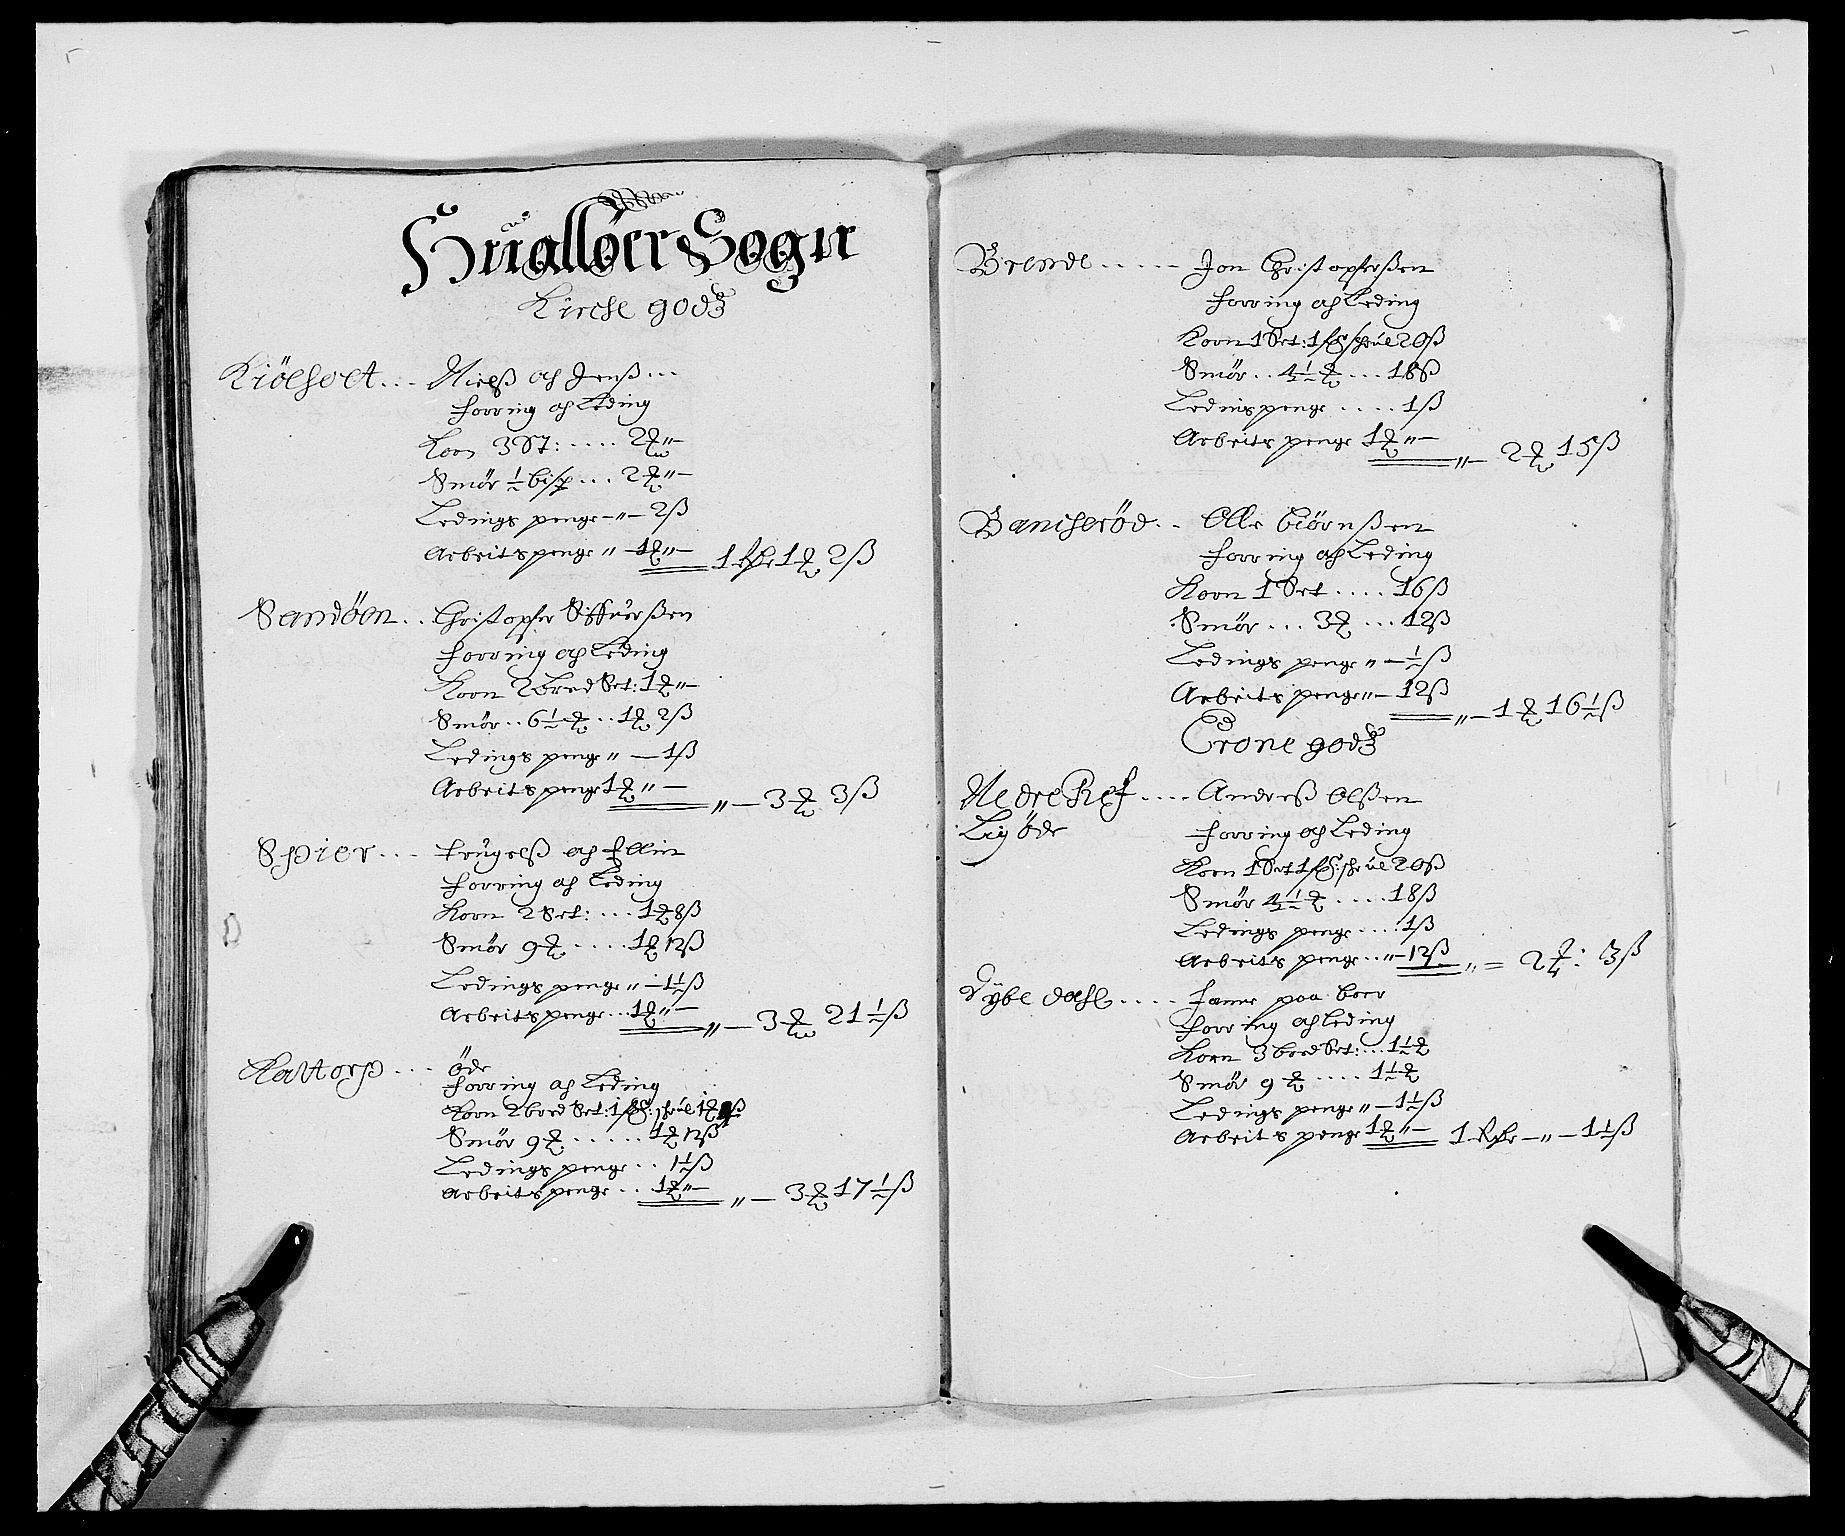 Huallöer Sogn
Kirche godtz
Kiölholt... Nielß och Jenß...
Forring och Leding
Korn 3 St: ..... 2 ₰ "-
Smör ½ bisp ... 2 ₰ "-
Ledings penge -"- 2 ß
Arbeits penge " - 1 ₰ "- 1 rdr 1 ₰ 2 ß
Sandöen .. Christopher Siffuerßen
Forring och Leding
Korn 2 bred Set: 1 ₰ "-
Smör .. 6½ ₰ .. 1 ₰ 2 ß
Ledings penge " - 1 ß
Arbeits penge 1 ₰ " - " - 3 ₰ 3 ß
Spier ... Trugelß och Ellin
Forring och Leding
Korn 2 Set: ... 1 ₰ 8 ß
Smör 9 ₰ .... 1 ₰ 12 ß
Ledings penge " - 1½ ß
Arbeits penge ... 1 ₰ "- " - 3 ₰ 21½ ß
Kattorp ... öde
Forring och Leding
Korn 2 bred Set: 1 schrüe 1 ₰
Smör 9 ₰ ..... 1 ₰ 12 ß
Ledings penge .. 1½ ß
Arbeits penge ... 1 ₰ "- " - 3 ₰ 17½ ß
Brende ..... Jon Christopherßen
Forring och Leding
Korn 1 Set: 1 schrüe 20 ß
Smör .. 4½ ₰ ... 18 ß
Ledings penge .... 1 ß
Arbeits penge 1 ₰ "- " - 2 ₰ 15 ß
Bancheröd .. Olle Biörnßen
Forring och Leding
Korn 1 Set .... 16 ß
Smör ... 3 ₰ ... 12 ß
Ledings penge " - ½ ß
Arbeits penge " - 12 ß " - 1 ₰ 16½ ß
Crone godtz
Nedre Ref .... Andreß Olßen
Lig öde Forring och Leding
Korn 1 Set 1 schrüe 20 ß
Smör 4½ ₰ .... 18 ß
Ledings penge .... 1 ß
Arbeits penge .. " - 12 ß " = 2 ₰: 3 ß
Dybe dahl .... Samme paa boer
Forring och Leding
Korn 3 bred Set: ... 1½ ₰
Smör 9 ₰ .... 1½ ₰
Ledings penge " - 1½ ß
Arbeits penge 1 ₰ "- 1 Rdr - " - 1½ ß